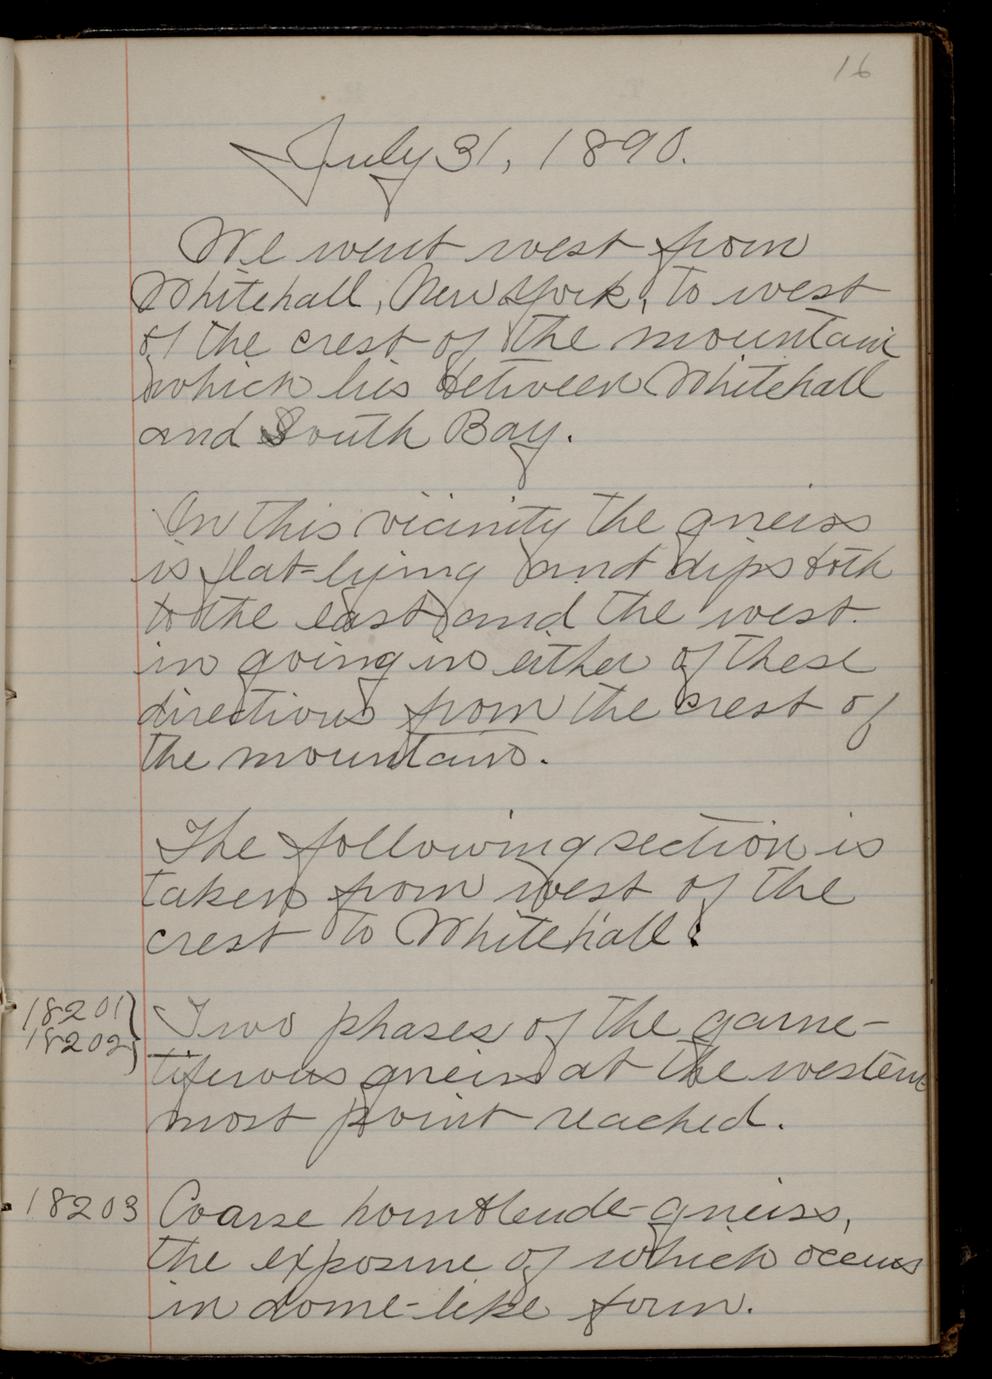 16
July 31, 1890.
We went west from
Whitehall, New York, to west
of the crest of the mountain
which lies between Whitehall
and South Bay.
In this vicinity the gneiss
is flat-lying and dips both
to the east and the west.
in going in either of these
directions from the crest of
the mountains.
The following section is
taken from west of the
crest to Whitehall:
18201 } Two phases of the garne-
18202 } tiferous gneiss at the western
most point reached.
18203 Coarse hornblende-gneiss,
the exposure of which occurs
in dome-like form.